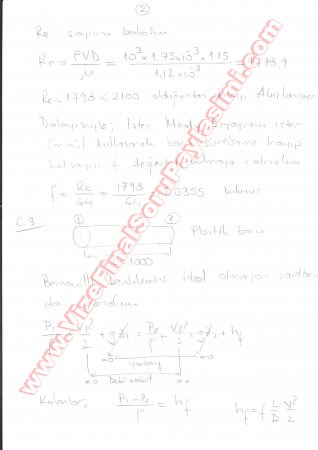 2
Re sayısını bulalım.
Re = ρVD / μ = 10³ × 1,75×10⁻³ × 1,15 / 1,12×10⁻³ = 1793,9
Re = 1793 < 2100 olduğundan Akış Laminer
Dolayısıyla; ister Moody diyagramı ister
kullanarak boru sürtünme kayıp
katsayısı f değerini bulmaya çalışalım
f = Re / 64 = 1793 / 64 = 0.0355 bulunur
C.3.
1 2 Plastik boru
1000
Bernoulli denklemini ideal olmayan
da yazalım
P₁/ρ + V₁²/2 + gz₁ = P₂/ρ + V₂²/2 + gz₂ + hf
yatay
=0 =0
Debi sabit
=0 =0
Kalanlar; P₁ - P₂ / ρ = hf
hf = f L/D V²/2
www.VizeFinalSoruPaylasimi.com